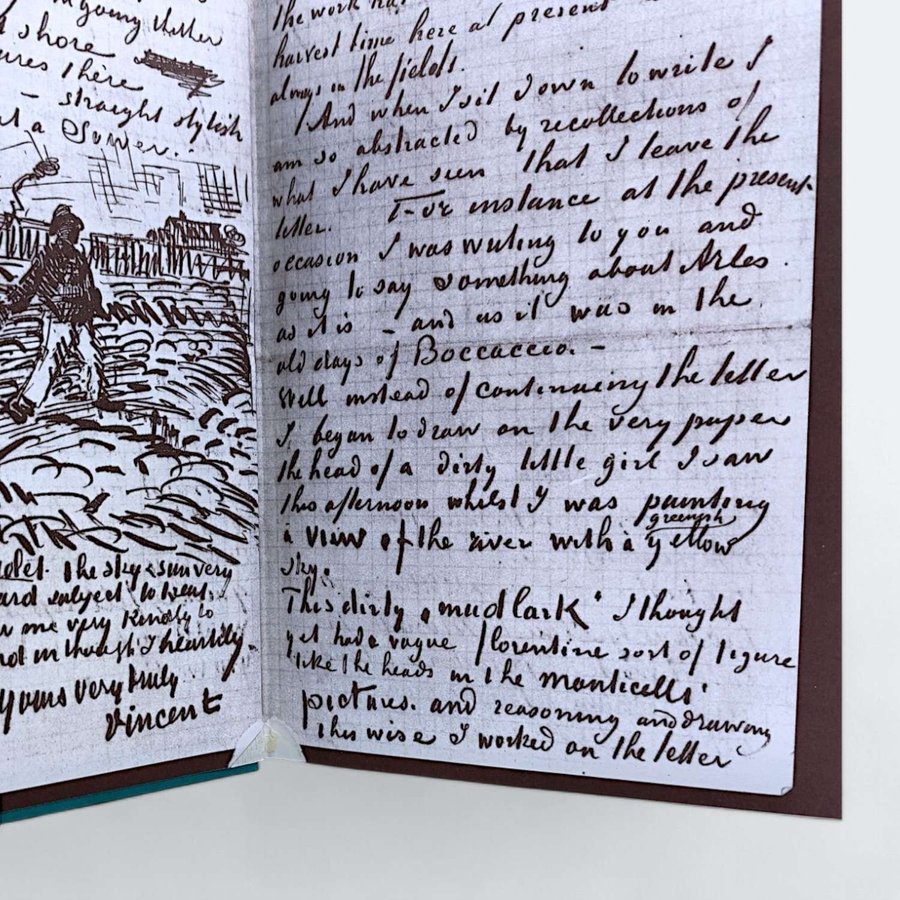 going thither
shore
there
– straight stylish
a Sower.
The sky & sun very
hard subject to treat.
me very kindly to
and in though I heartily
yours very truly
Vincent
the work
harvest time here at present
always in the fields.
And when I sit down to write I
am so abstracted by recollections of
what I have seen that I leave the
letter. For instance at the present
occasion I was writing to you and
going to say something about Arles
as it is – and as it was in the
old days of Boccaccio. –
Well instead of continuing the letter
I began to draw on the very paper
the head of a dirty little girl I saw
this afternoon whilst I was painting
a view of the river with a greenish yellow
sky.
This dirty „mudlark‟ I thought
yet had a vague florentine sort of figure
like the heads in the monticelli
pictures. and reasoning and drawing
this wise I worked on the letter